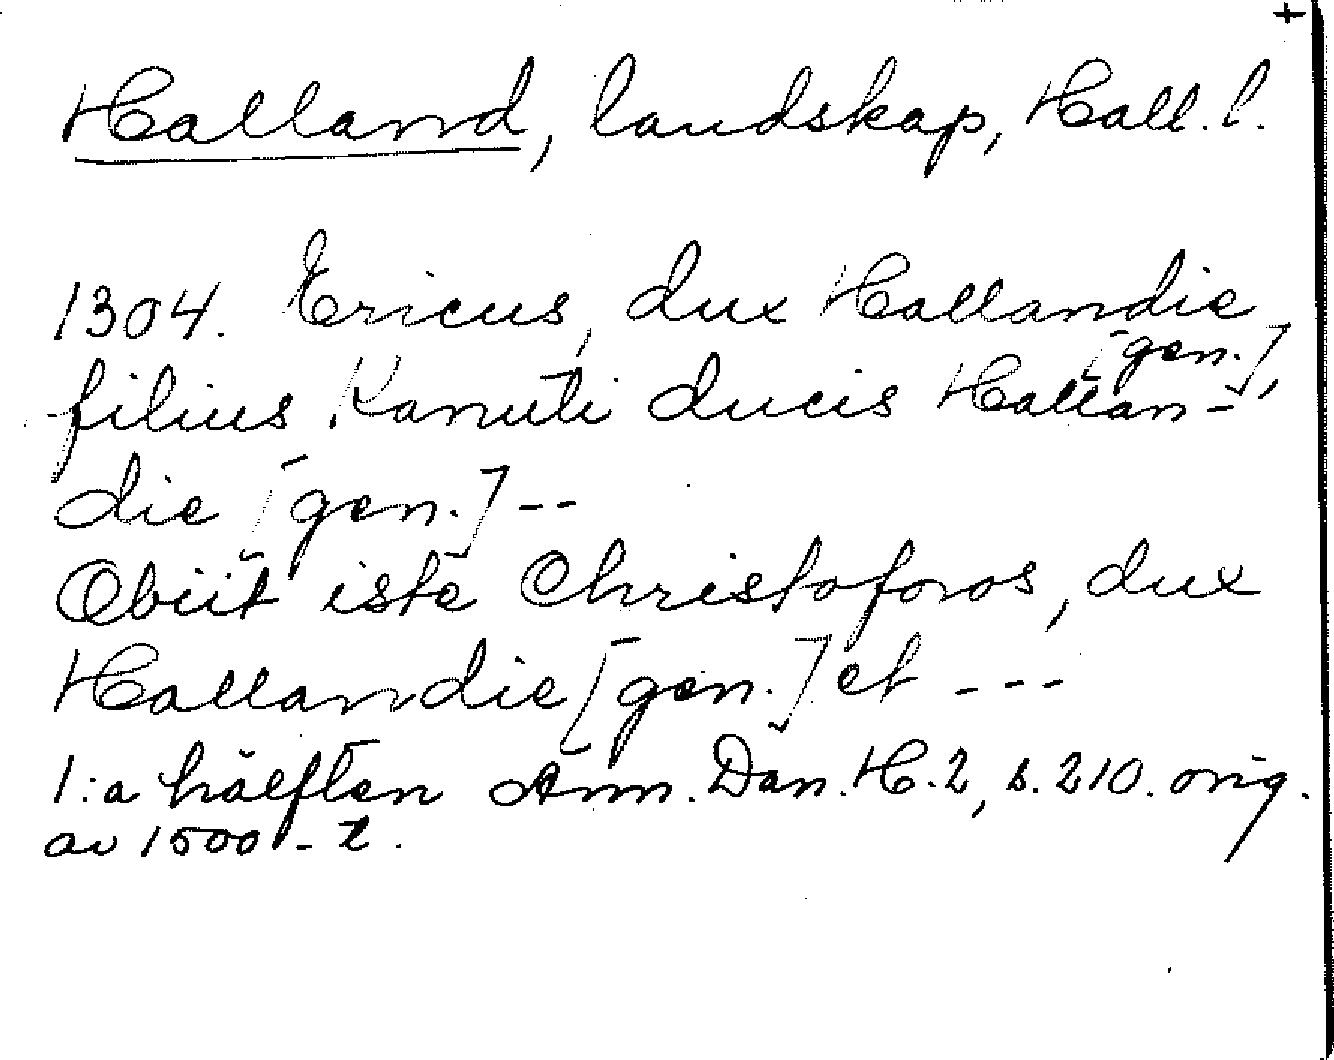 +
Halland, landskap, Hall. l.
1304. Ericus, dux Hallandie
[gen.],
filius Kanuti ducis Hallan-
die [gen.] --
Obiit iste Christoforos, dux
Hallandie [gen.] et ---
1:a hälften Ann. Dan. H. 2, s. 210. orig.
av 1500-t.